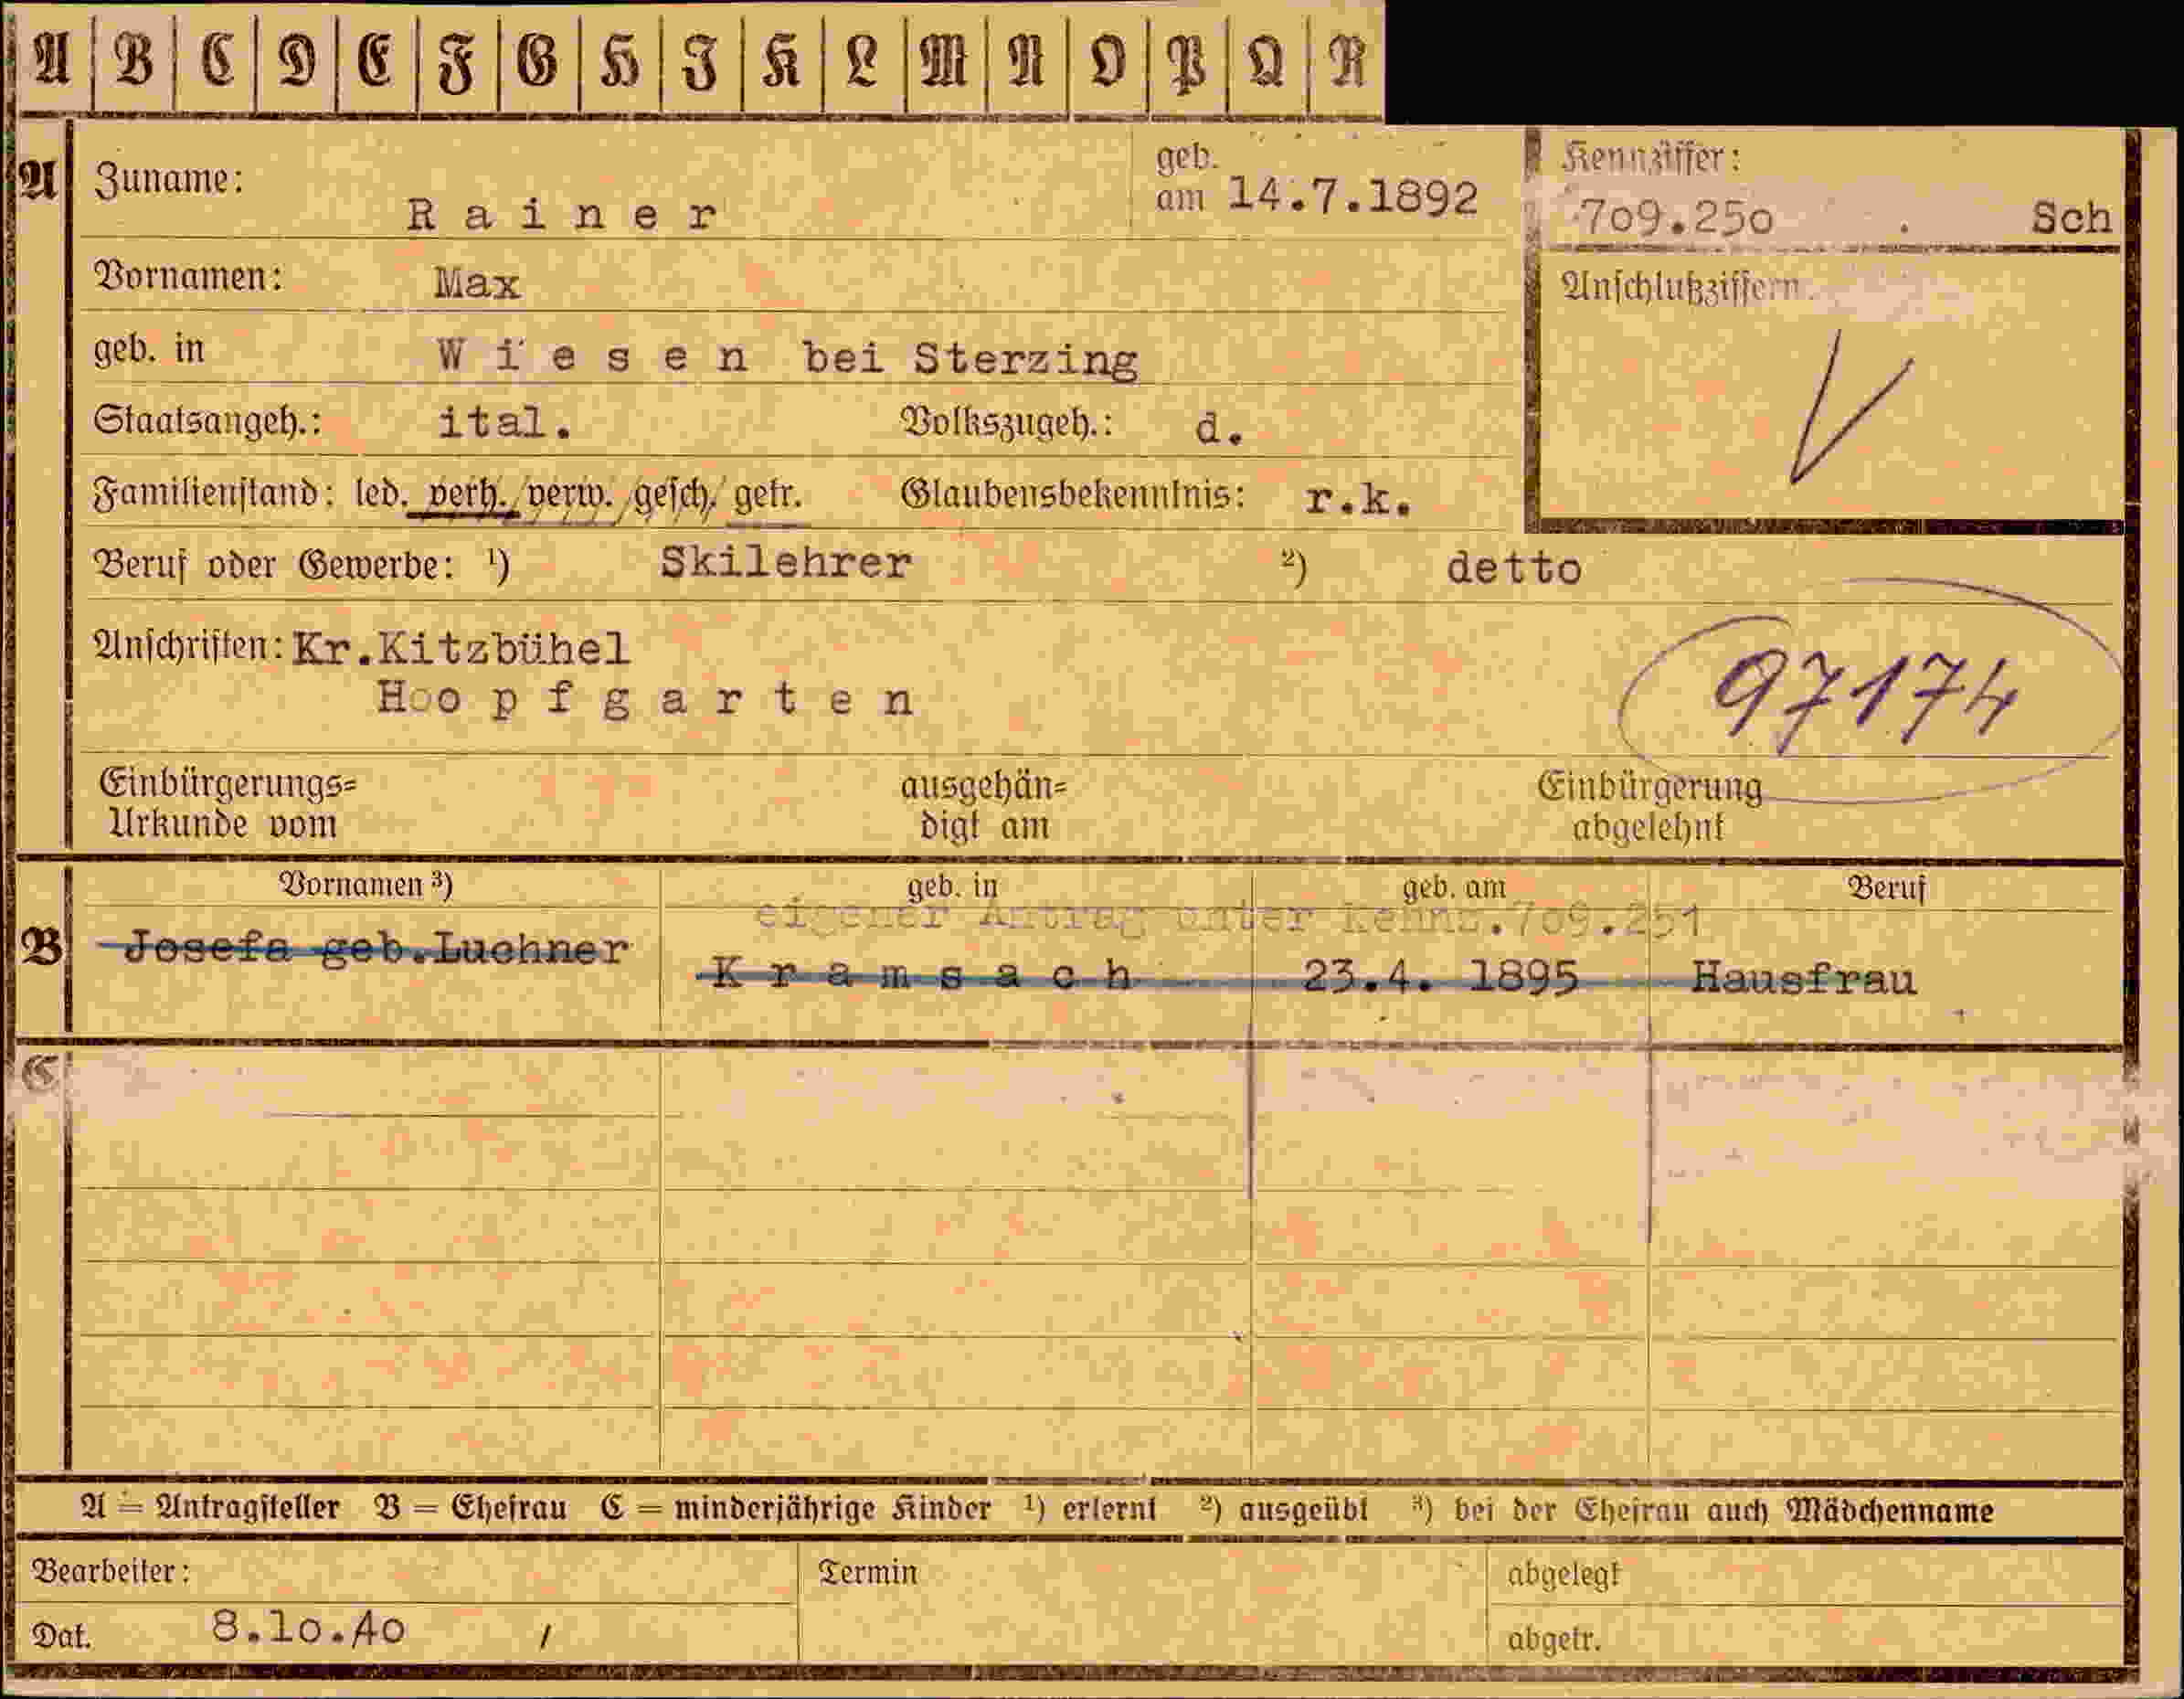 A B C D E F G H I K L M N O P Q R
A Zuname: Rainer geb. am 14.7.1892 Kennziffer: 709.250 Sch
Vornamen: Max Anschlußziffern
geb. in Wiesen bei Sterzing
Staatsangeh.: ital. Volkszugeh.: d.
Familienstand: led. verh. verw. gesch. getr. Glaubensbekenntnis: r.k.
Beruf oder Gewerbe: ¹) Skilehrer ²) detto
Anschriften: Kr.Kitzbühel
Hoopfgarten
97174
Einbürgerungs= ausgehän= Einbürgerung
Urkunde vom digt am abgelehnt
Vornamen ³) geb. in geb. am Beruf
eigener Antrag unter Kennz.709.251
B Josefa geb.Luchner Kramsach 23.4. 1895 Hausfrau
C
A = Antragsteller B = Ehefrau C = minderjährige Kinder ¹) erlernt ²) ausgeübt ³) bei der Ehefrau auch Mädchenname
Bearbeiter: Termin abgelegt
Dat. 8.10.40 / abgetr.